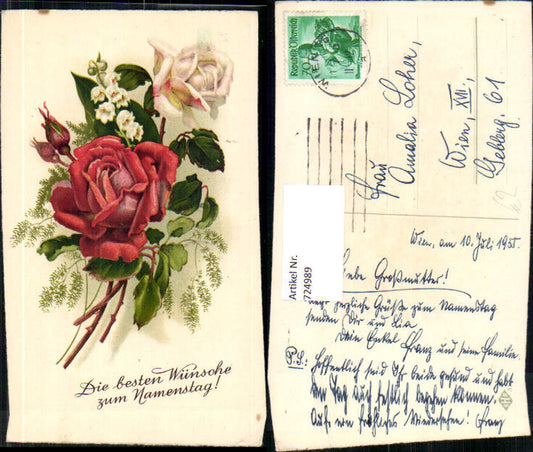 Die besten Wünsche
zum Namenstag!
REPUBLIK ÖSTERREICH
70
WIEN
Frau
Amalia Loher,
Wien, XVII.,
Geblerg. 61
62
Artikel Nr.
724989
Wien, am 10. Juli 1951.
Liebe Großmutter!
herzliche Grüße zum Namenstag
senden Dir und Lia
Dein Enkel Franz und seine Familie.
P.S.: Hoffentlich seid Ihr beide gesund und habt
den Tag auch festlich begehen können.
Auf ein fröhliches Wiedersehen! Franz